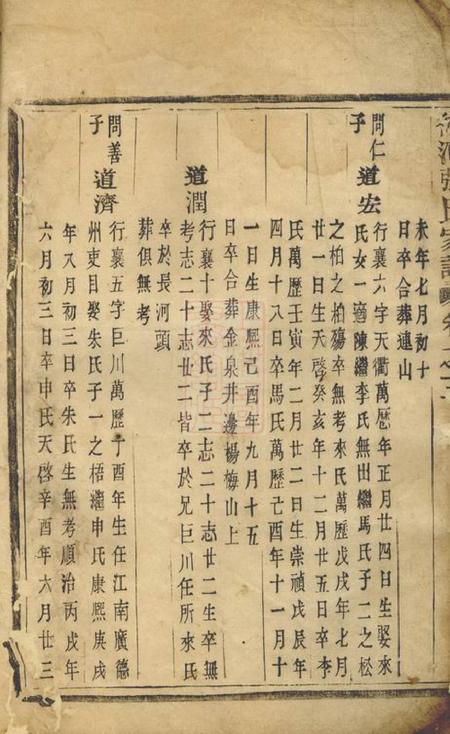 張氏家譜
未年七月初十
日卒合葬連山
問仁子
道宏
行襄六字天衢萬歷年正月廿四日生娶來
氏女一適陳繼李氏無出繼馬氏子二之松
之柏之柏殤卒無考來氏萬歷戊戌年七月
廿一日生天啓癸亥年十二月廿五日卒李
氏萬歷壬寅年二月廿二日生崇禎戊辰年
四月十八日卒馬氏萬歷己酉年十一月十
一日生康熙己酉年九月十五
日卒合葬金泉井邊楊梅山上
道潤
行襄十娶來氏子二志二十志廿二生卒無
考志二十志廿二皆卒於兄巨川任所來氏
卒於長河頭
葬俱無考
問善子
道濟
行襄五字巨川萬歷丁酉年生任江南廣德
州吏目娶朱氏子一之梧繼申氏康熙庚戌
年八月初三日卒朱氏生無考順治丙戌年
六月初三日卒申氏天啓辛酉年六月廿三